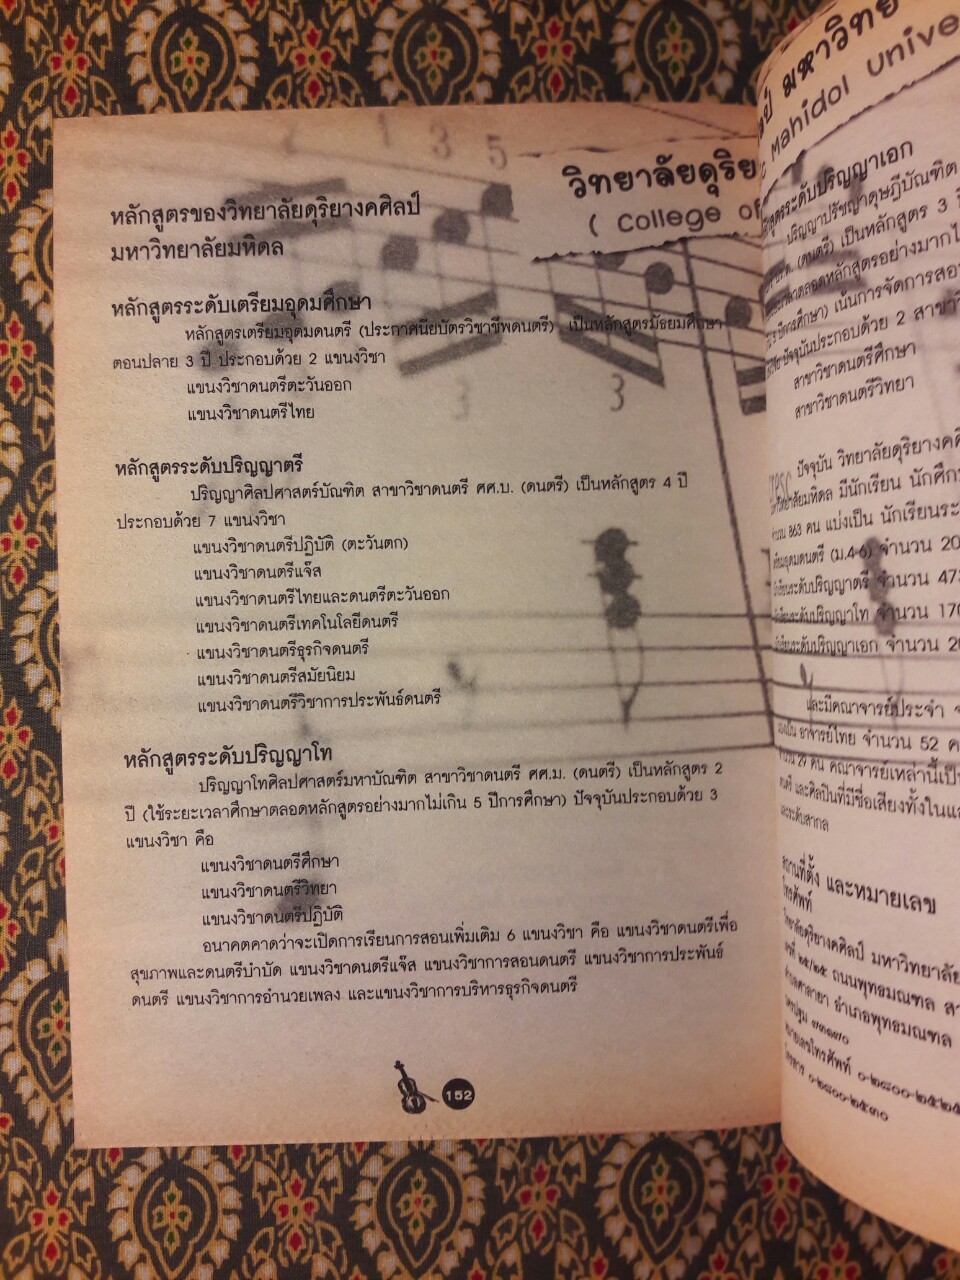 วิทยาลัยดุริย
( College of
หลักสูตรของวิทยาลัยดุริยางคศิลป์
มหาวิทยาลัยมหิดล
หลักสูตรระดับเตรียมอุดมศึกษา
หลักสูตรเตรียมอุดมดนตรี (ประกาศนียบัตรวิชาชีพดนตรี) เป็นหลักสูตรมัธยมศึกษา
ตอนปลาย 3 ปี ประกอบด้วย 2 แขนงวิชา
แขนงวิชาดนตรีตะวันออก
แขนงวิชาดนตรีไทย
หลักสูตรระดับปริญญาตรี
ปริญญาศิลปศาสตร์บัณฑิต สาขาวิชาดนตรี ศศ.บ. (ดนตรี) เป็นหลักสูตร 4 ปี
ประกอบด้วย 7 แขนงวิชา
แขนงวิชาดนตรีปฏิบัติ (ตะวันตก)
แขนงวิชาดนตรีแจ๊ส
แขนงวิชาดนตรีไทยและดนตรีตะวันออก
แขนงวิชาดนตรีเทคโนโลยีดนตรี
แขนงวิชาดนตรีธุรกิจดนตรี
แขนงวิชาดนตรีสมัยนิยม
แขนงวิชาดนตรีวิชาการประพันธ์ดนตรี
หลักสูตรระดับปริญญาโท
ปริญญาโทศิลปศาสตร์มหาบัณฑิต สาขาวิชาดนตรี ศศ.ม. (ดนตรี) เป็นหลักสูตร 2
ปี (ใช้ระยะเวลาศึกษาตลอดหลักสูตรอย่างมากไม่เกิน 5 ปีการศึกษา) ปัจจุบันประกอบด้วย 3
แขนงวิชา คือ
แขนงวิชาดนตรีศึกษา
แขนงวิชาดนตรีวิทยา
แขนงวิชาดนตรีปฏิบัติ
อนาคตคาดว่าจะเปิดการเรียนการสอนเพิ่มเติม 6 แขนงวิชา คือ แขนงวิชาดนตรีเพื่อ
สุขภาพและดนตรีบำบัด แขนงวิชาดนตรีแจ๊ส แขนงวิชาการสอนดนตรี แขนงวิชาการประพันธ์
ดนตรี แขนงวิชาการอำนวยเพลง และแขนงวิชาการบริหารธุรกิจดนตรี
152
มหาวิทย
Mahidol Unive
ระดับปริญญาเอก
ปริญญาปรัชญาดุษฎีบัณฑิต
(ดนตรี) เป็นหลักสูตร 3
หลักสูตรอย่างมากไ
เน้นการจัดการสอน
ปัจจุบันประกอบด้วย 2 สาขาวิ
สาขาวิชาดนตรีศึกษา
สาขาวิชาดนตรีวิทยา
ปัจจุบัน วิทยาลัยดุริยางคศิ
มหิดล มีนักเรียน นักศึก
จำนวน 863 คน แบ่งเป็น นักเรียนระ
อุดมดนตรี (ม.4-6) จำนวน 20
ระดับปริญญาตรี จำนวน 473
ระดับปริญญาโท จำนวน 170
ระดับปริญญาเอก จำนวน 20
และมีคณาจารย์ประจำ จ
อาจารย์ไทย จำนวน 52 ค
จำนวน 29 คน คณาจารย์เหล่านี้เป็น
และศิลปินที่มีชื่อเสียงทั้งในแ
และระดับสากล
สถานที่ตั้ง และหมายเลข
โทรศัพท์
วิทยาลัยดุริยางคศิลป์ มหาวิทยาลัย
๒๕/๒๕ ถนนพุทธมณฑล สา
ศาลายา อำเภอพุทธมณฑล
๗๓๑๗๐
หมายเลขโทรศัพท์ ๐-๒๘๐๐-๒๕๒๕
โทรสาร ๐-๒๘๐๐-๒๕๓๐